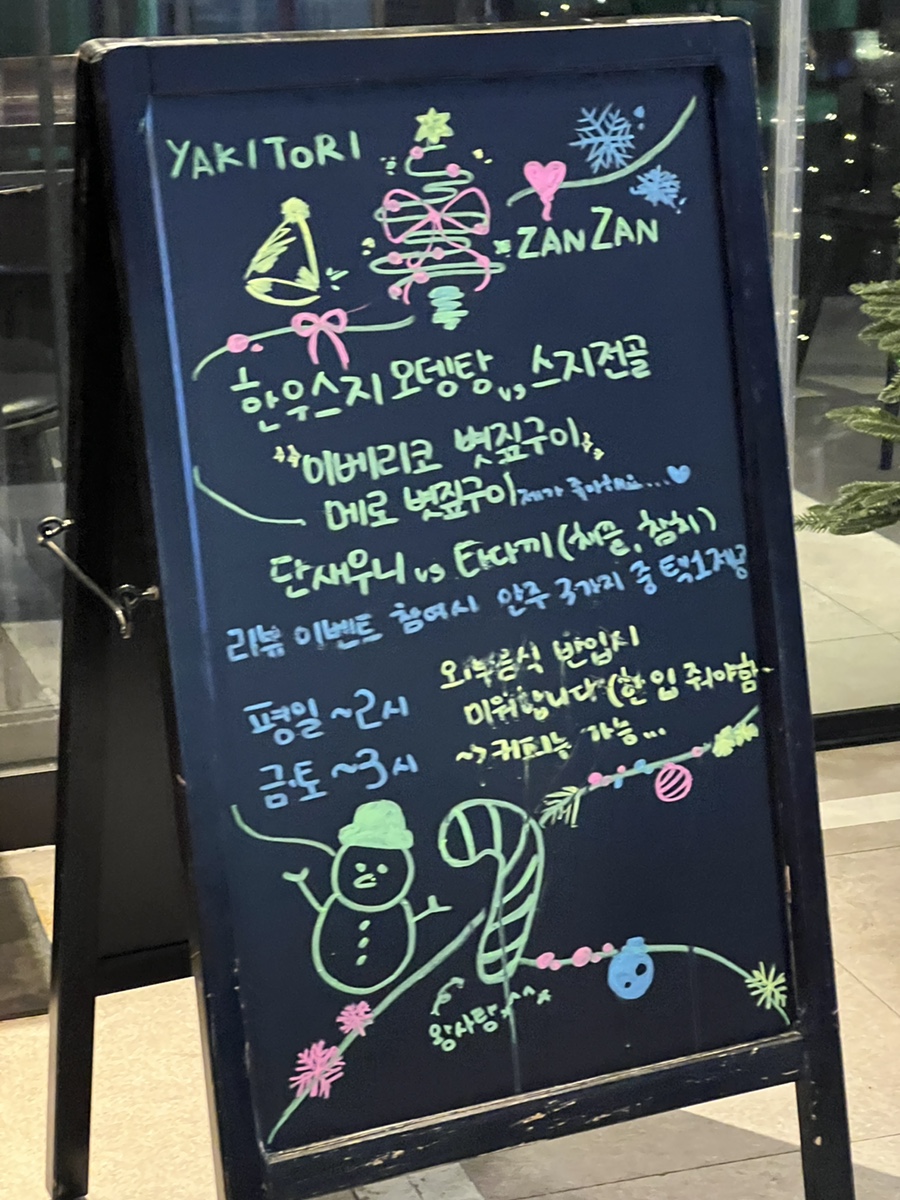 YAKITORI
ZANZAN
한우스지 오뎅탕 vs 스지전골
이베리코 볏짚구이
메로 볏짚구이 제가 좋아해요...
단새우니 vs 타다끼 (채끝, 참치)
리뷰 이벤트 참여시 안주 3가지 중 택1제공
외부음식 반입시
미워합니다 (한입 줘야함~
~> 케익은 가능...
평일 ~2시
금·토 ~3시
왕사탕 ^^